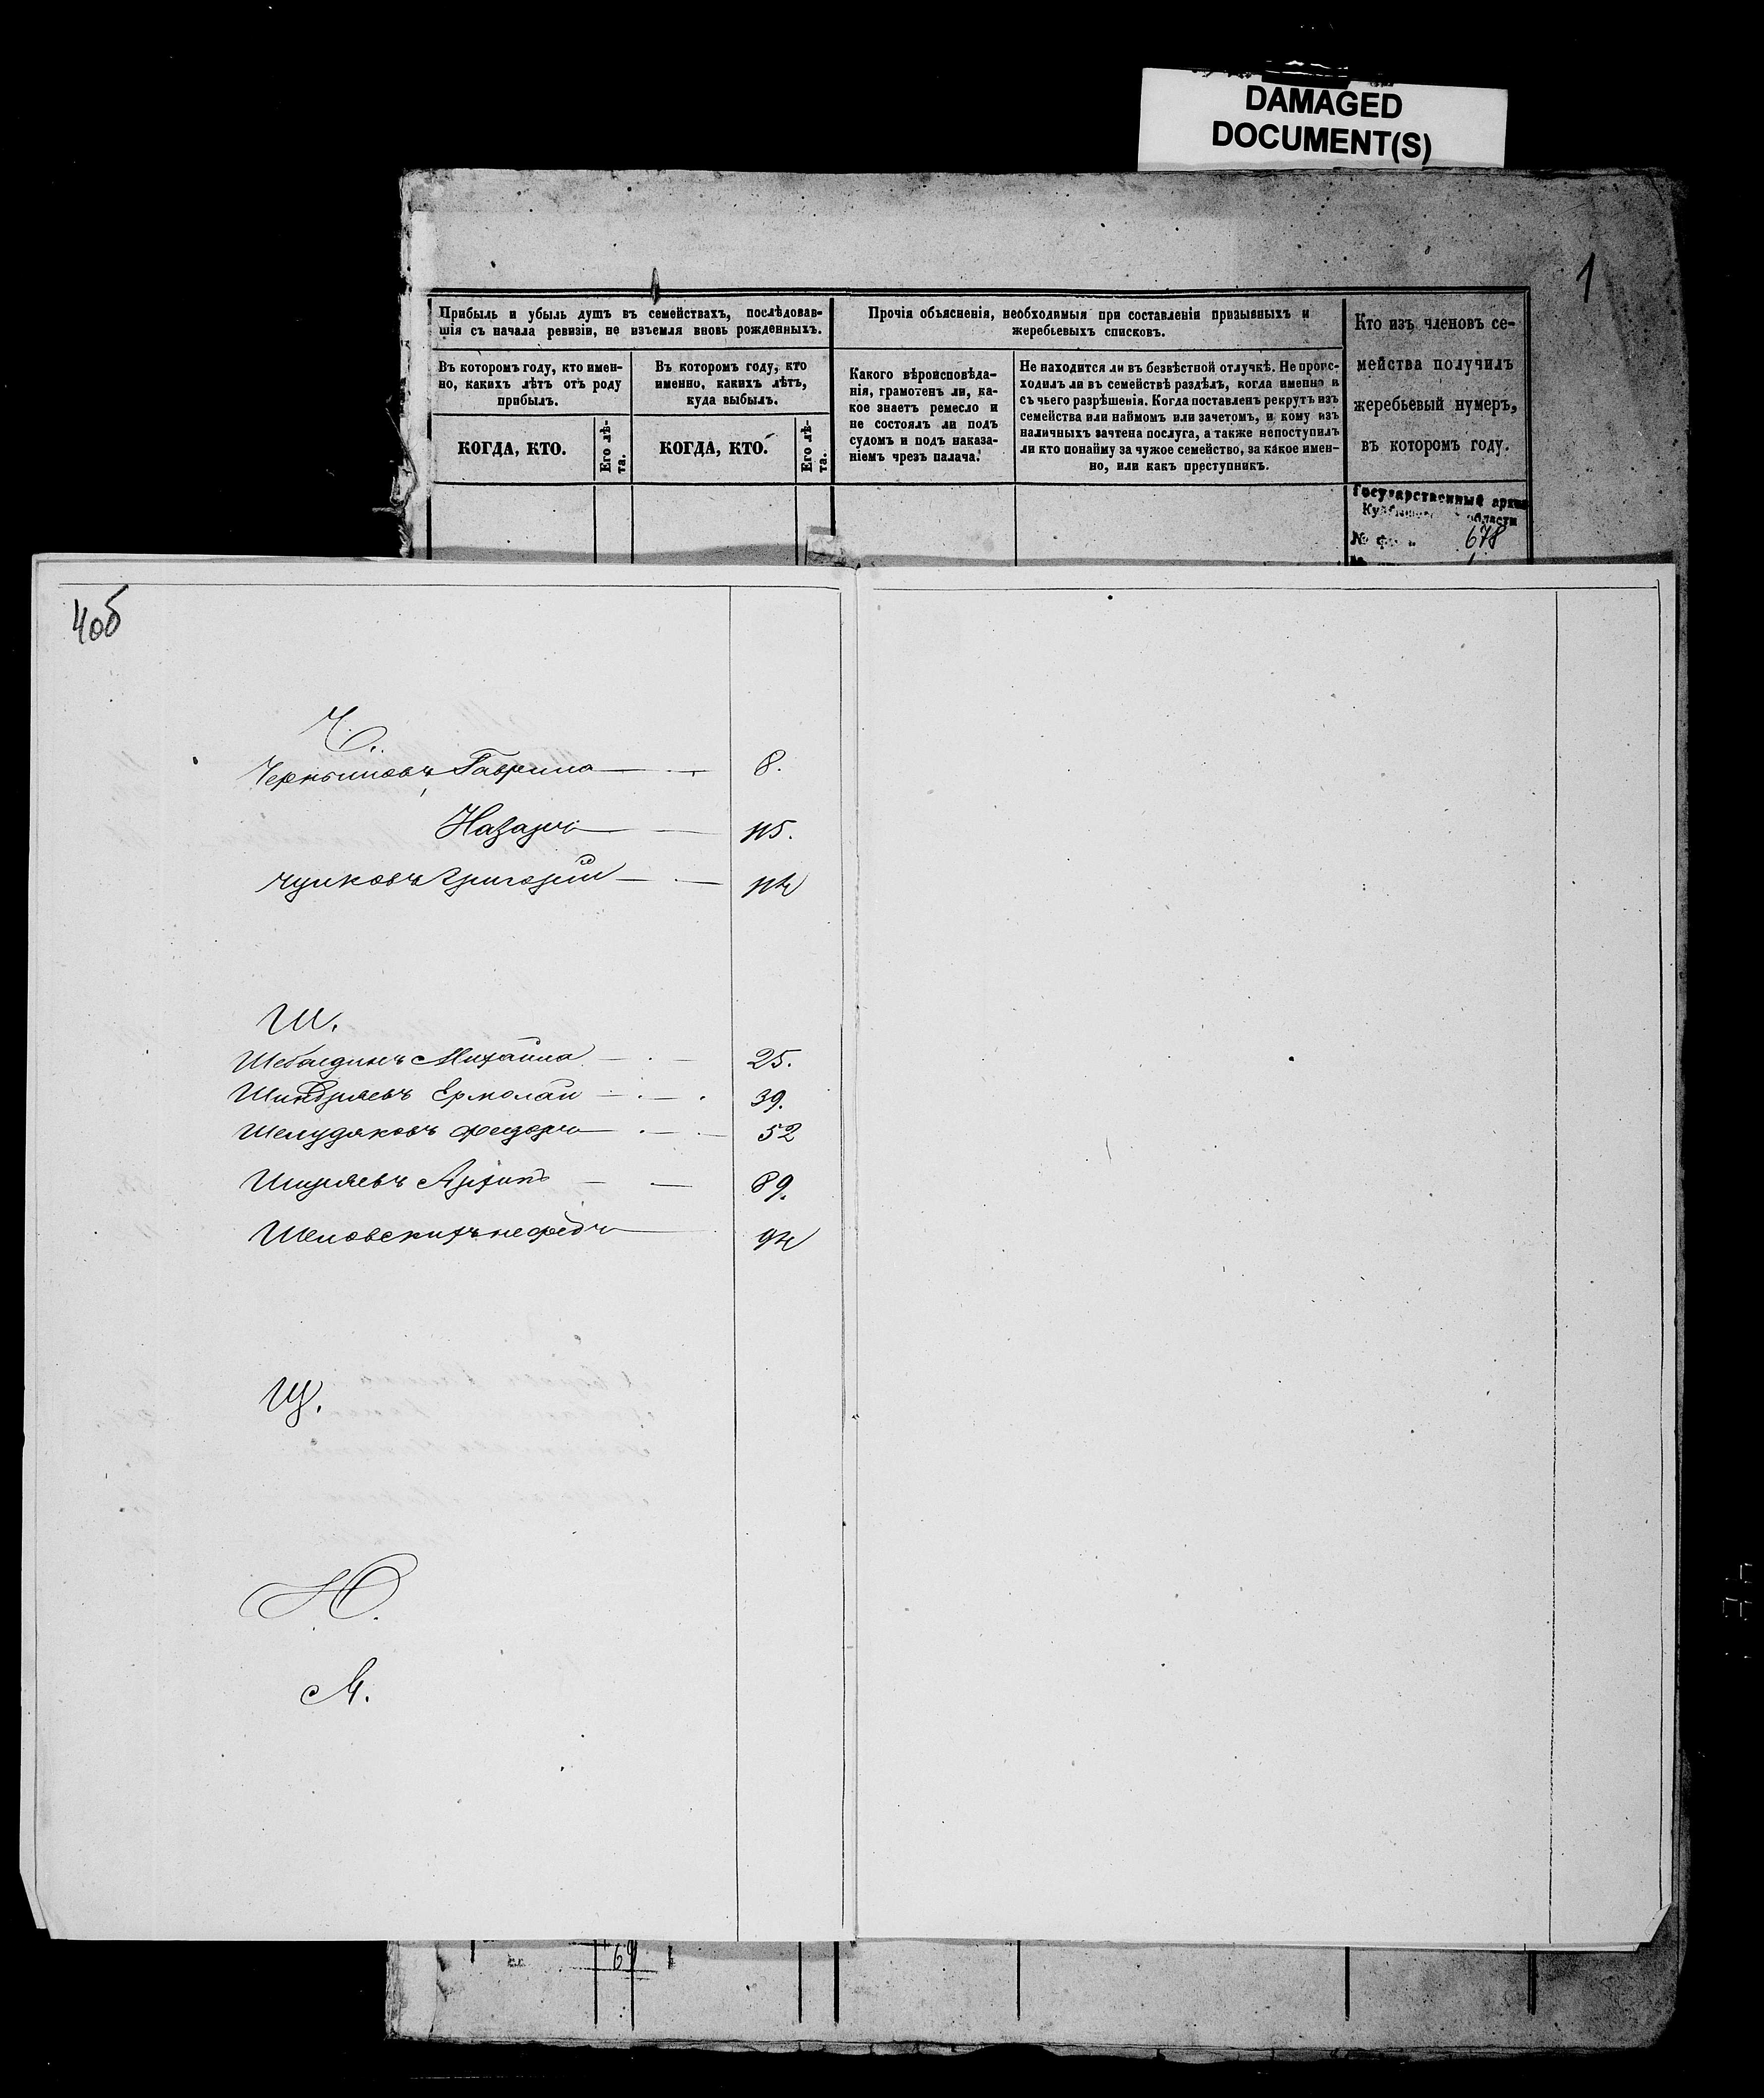 DAMAGED
DOCUMENT(S)
1
Прибыль и убыль душъ въ семействахъ, послѣдовав-
шія съ начала ревизіи, не изъемля вновь рожденныхъ.
Въ которомъ году, кто имен-
но, какихъ лѣтъ отъ роду
прибылъ.
Въ которомъ году, кто
именно, какихъ лѣтъ,
куда выбылъ.
КОГДА, КТО.
Его лѣ-
та.
КОГДА, КТО.
Его лѣ-
та.
Прочія объясненія, необходимыя при составленіи призывныхъ и
жеребьевыхъ списковъ.
Какого вѣроисповѣда-
нія, грамотенъ ли, ка-
кое знаетъ ремесло и
не состоялъ ли подъ
судомъ и подъ наказа-
ніемъ чрезъ палача.
Не находится ли въ безвѣстной отлучкѣ. Не проис-
ходилъ ли въ семействѣ раздѣлъ, когда именно и
съ чьего разрѣшенія. Когда поставленъ рекрутъ изъ
семейства или наймомъ или зачетомъ, и кому изъ
наличныхъ зачтена послуга, а также непоступилъ
ли кто понайму за чужое семейство, за какое имен-
но, или какъ преступникъ.
Кто изъ членовъ се-
мейства получилъ
жеребьевый нумеръ,
въ которомъ году.
Государственный архив
области
№ 678
4об
Ч.
Гаврила 8.
Назаръ 115.
Чулковъ Григорій 114
Ш.
Шебалдинъ Михайла 25.
Шиндряевъ Ермолай 39.
Шелудяковъ Федоръ 52
Ширяевъ Архипъ 89.
Нефедъ 94
Щ.
Ю.
Я.
69